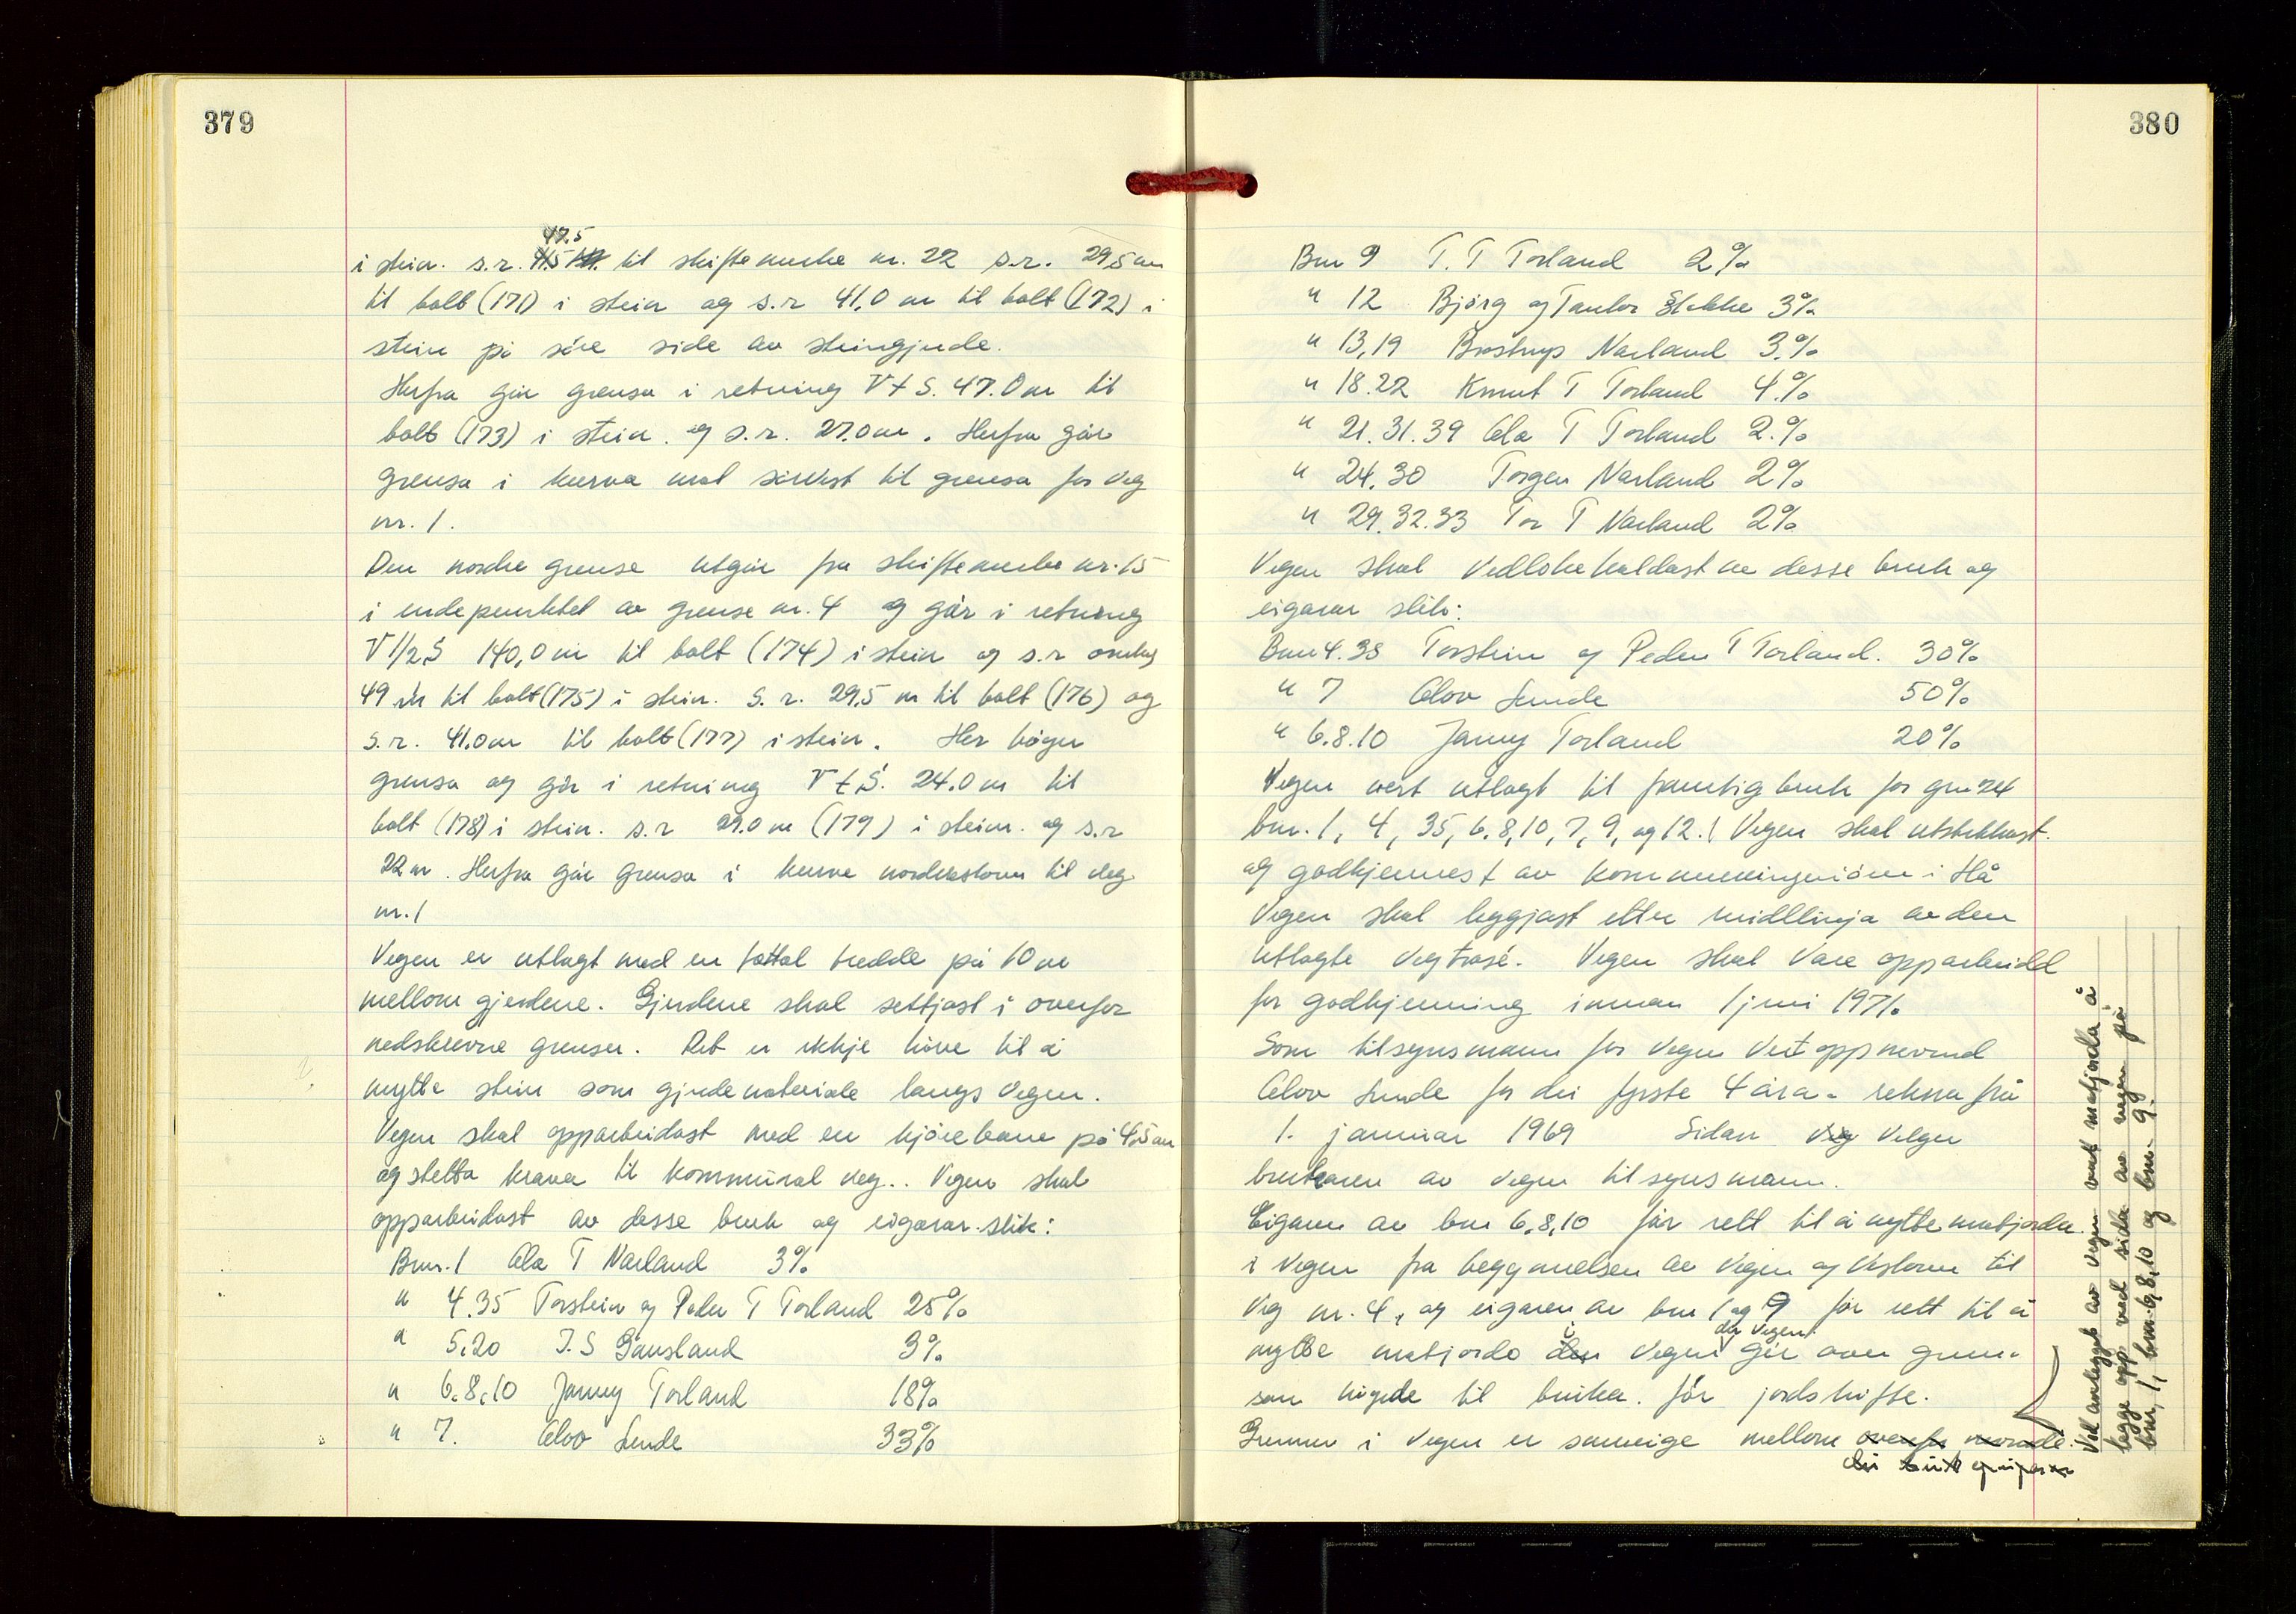 379
i stein. s.r. 47.5 til skiftemerke nr. 22 s.r. 29,5 m
til bolt (171) i stein og s.r 41,0 m til bolt (172) i
stein på søre side av steingjerde.
Herfra går grensa i retning V t S. 47.0 m til
bolt (173) i stein. og s.r. 27.0 m. Herfra går
grensa i kurva mot sørvest til grensa for veg
nr. 1.
Den nordre grense utgår fra skiftemerke nr. 15
i endepunktet av grense nr. 4 og går i retning
V 1/2 S 140,0 m til bolt (174) i stein og s.r omlag
49 m til bolt (175) i stein. s.r. 29,5 m til bolt (176) og
s.r. 41.0 m til bolt (177) i stein. Her bøyer
grensa og går i retning V t S. 24.0 m til
bolt (178) i stein. s.r 29.0 m (179) i stein. og s.r
22 m. Herfra går grensa i kurve nordvestover til veg
nr. 1
Vegen er utlagt med en total bredde på 10 m
mellom gjerdene. Gjerdene skal settjast i ovenfor
nedskrevne grenser. Det er ikkje høve til å
nytte stein som gjerdemateriale langs vegen.
Vegen skal opparbeidast med en kjørebane på 4,5 m
og stetta krava til kommunal veg.. Vegen skal
opparbeidast av desse bruk og eigarar slik:
Bnr. 1 Ola T Narland 3%
" 4.35 Torstein og Peder T Torland 25%
" 5,20 T. S Gausland 3%
" 6.8.10 Janny Torland 18%
" 7. Olov Lende 33%
380
Bnr 9 T. T Torland 2%
" 12 Bjørg og Tanker Stokke 3%
" 13,19 Brostrup Narland 3.%
" 18.22 Knut T Torland 4.%
" 21.31.39 Ola T Torland 2.%
" 24.30 Torger Narland 2%
" 29.32.33 Tor T Narland 2%
Vegen skal vedlikehaldast av desse bruk og
eigarar slik:
Bnr 4.35 Torstein og Peder T Torland. 30%
" 7 Olov Lende 50%
" 6.8.10 Janny Torland 20%
Vegen vert utlagt til framtig bruk for gnr 24
bnr. 1, 4, 35, 6,8,10, 7, 9, og 12. Vegen skal utstikkast.
og godkjennest av kommuneingeniøren i Hå
Vegen skal leggjast etter midtlinja av den
utlagte vegtrasé. Vegen skal vare opparbeidd
for godkjenning innan 1 juni 1971.
Som tilsynsmann for vegen vert oppnevnd
Olov Lende for dei fyrste 4 åra - rekna frå
1. januar 1969 Sidan velger
brukaren av vegen tilsynsmann.
Eigaren av bnr 6,8,10 får rett til å nytte matjorda
i vegen fra begynnelsen av vegen og vestover til
veg nr. 4, og eigaren av bnr 1 og 9 får rett til å
nytte matjorda i vegen der vegen går over grunn
som høyrde til bruka. før jordskifte.
Grunnen i vegen er sameige mellom
dei bruk og eigarar
Ved anlegget av vegen vert matjorda å
legge opp ved sida av vegen på
bnr, 1, bnr. 6,8,10 og bnr. 9.